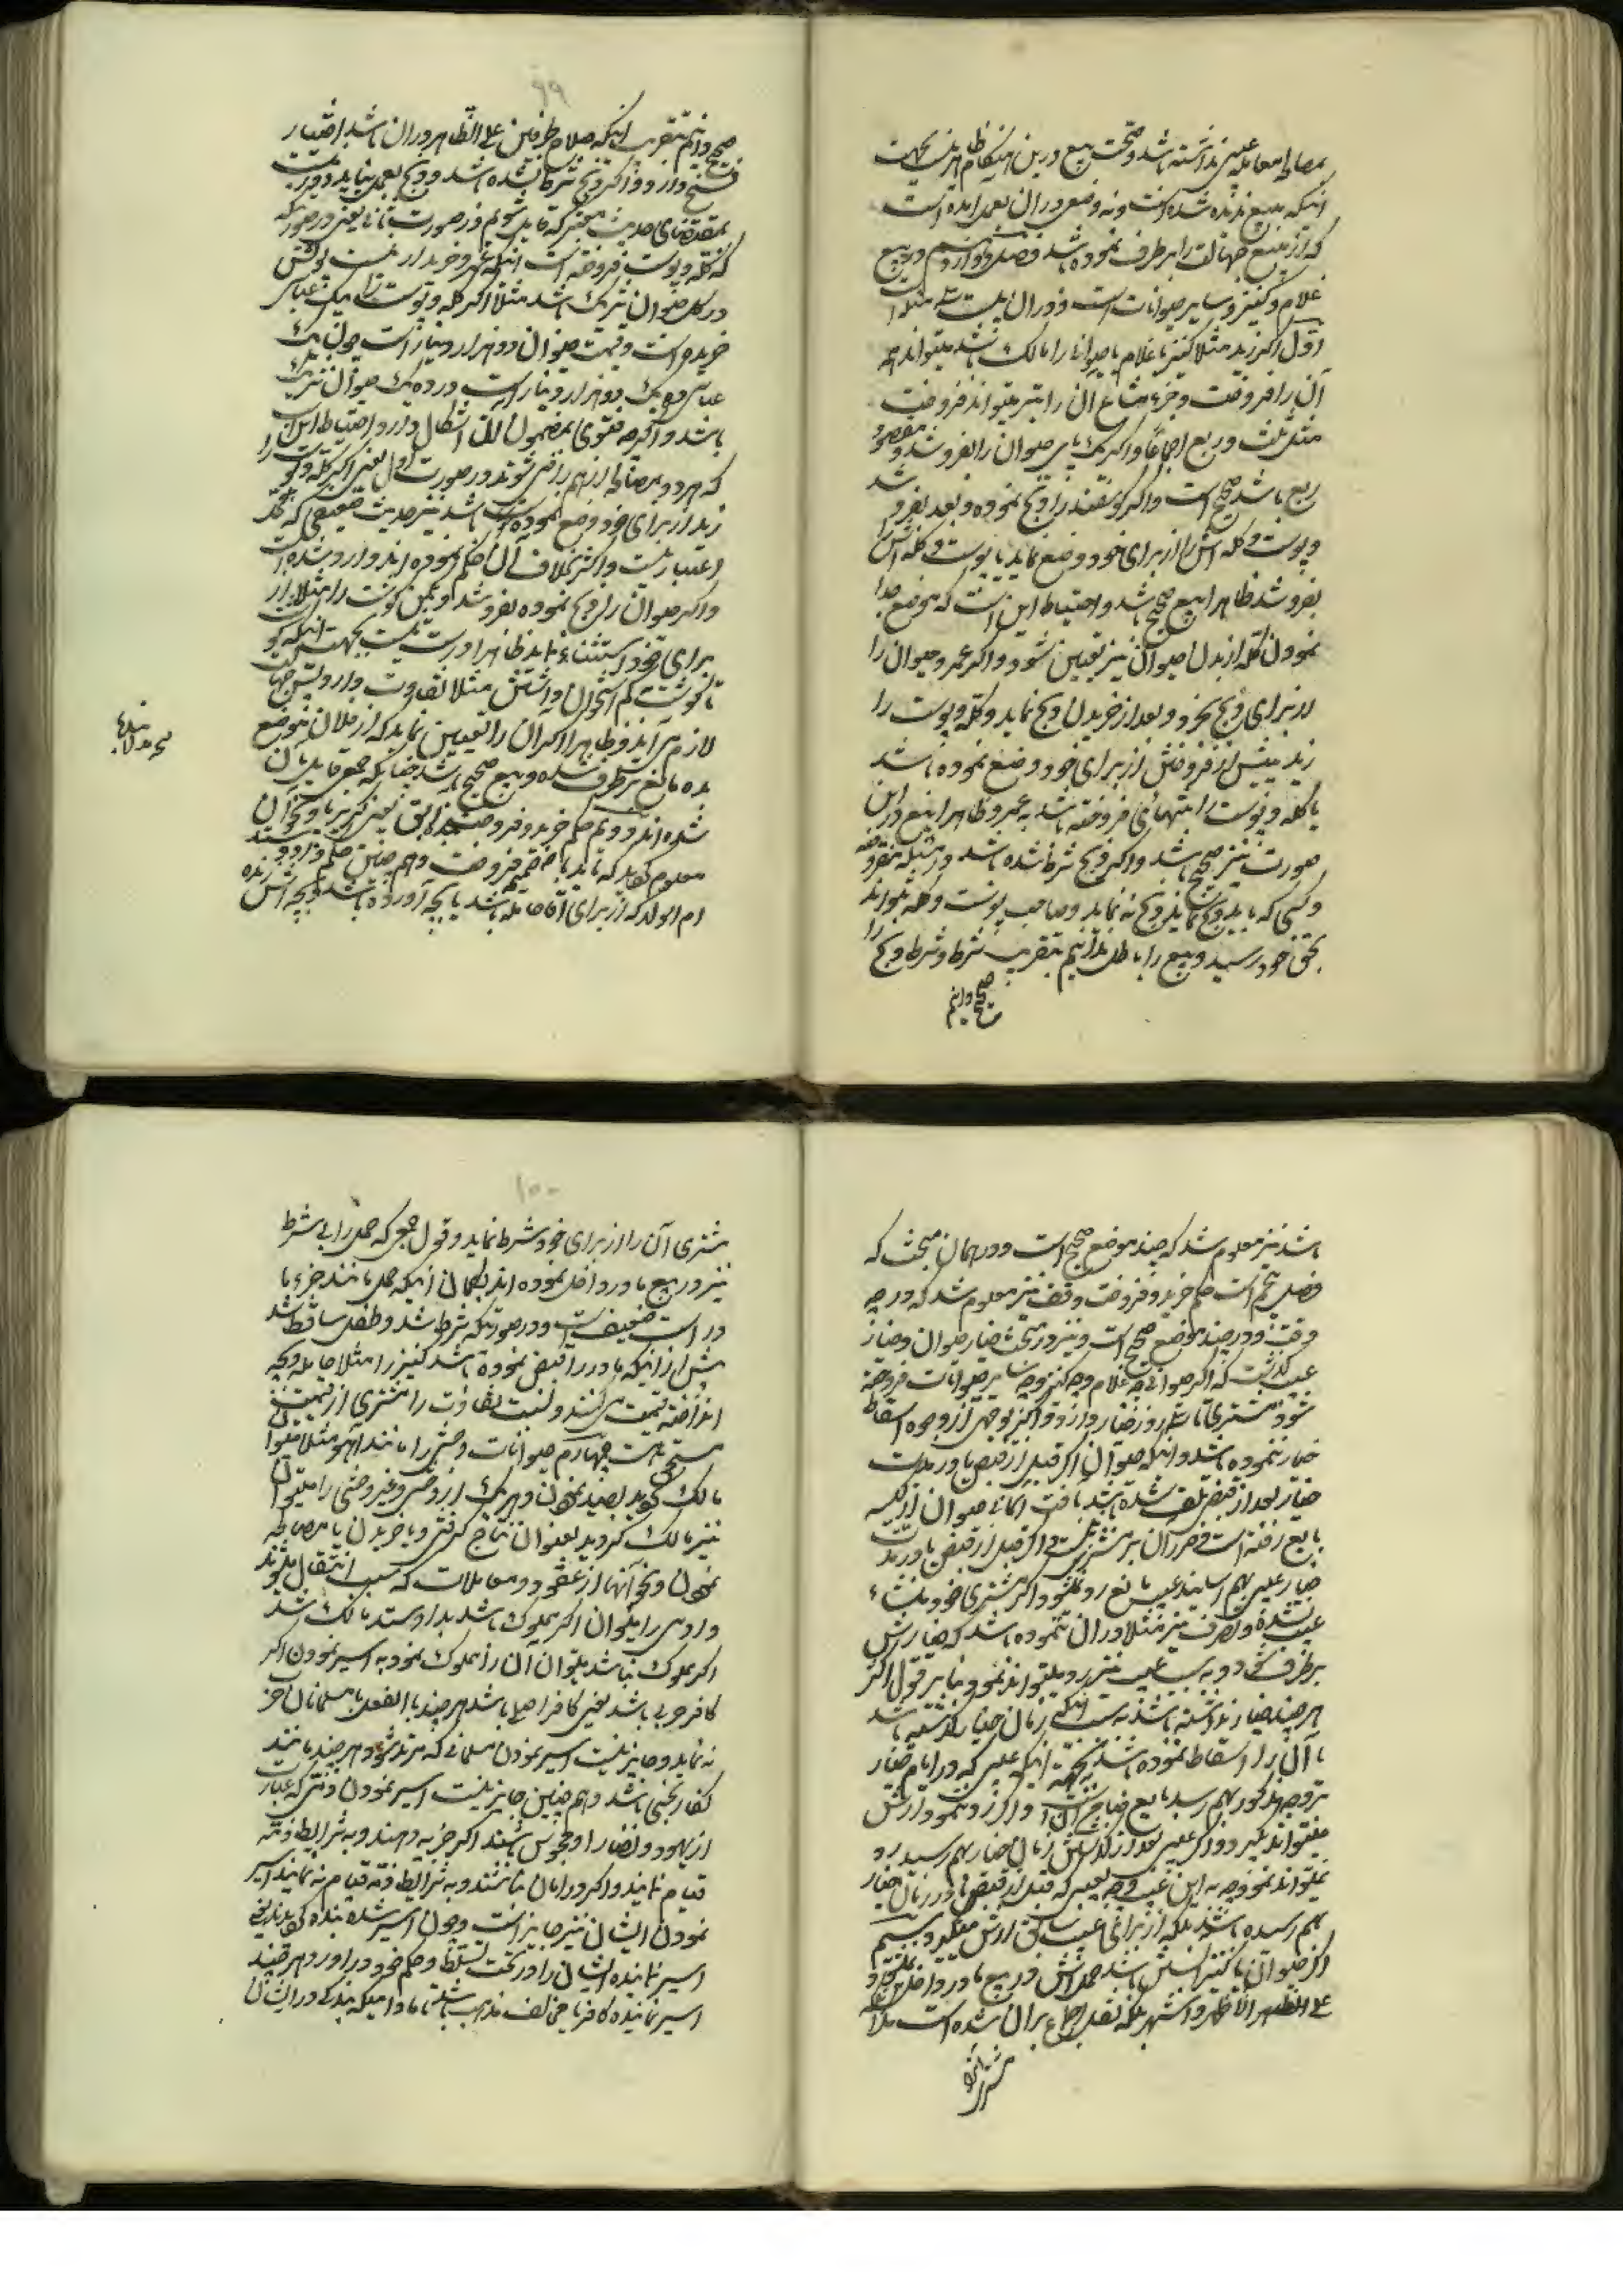 بمصالح معامله عیبی نداشته باشد و صحت بیع درین هنگام ظاهر نیست بجهت
اینکه مبیع دیده شده است و نه وصفی در آن بعمل آمده است
که از مبیع جهالت را برطرف نموده باشد فصل دوازدهم در بیع
غلام و کنیز و سایر حیوانات است و در آن بیست مسئله است
اول اگر زید مثلا کنیز یا غلام یا حیوانی را مالک باشد میتواند همه
آن را فروخت و جزء مشاع آن را نیز میتواند فروخت
مثل ثلث و ربع اجماعا و اگر یک پای حیوان را بفروشد و مقصود
ربع باشد صحیح است و اگر گوسفند را ذبح نموده و بعد بفروشد
و پوست و کله اش را از برای خود وضع نماید یا پوست و کله اش را
بفروشد ظاهرا بیع صحیح باشد و احتیاط این است که موضع جدا
نمودن کله از بدن حیوان نیز تعیین شود و اگر عمرو حیوان را
از برای ذبح بخرد و بعد از خریدن ذبح نماید و کله و پوست را
زید پیش از فروختن از برای خود وضع نموده باشد
یا کله و پوست را بتنهائی فروخته باشد به عمرو ظاهرا بیع در این
صورت نیز صحیح باشد و اگر ذبح شرط شده باشد در مسئله
و کسی که باید ذبح نماید ذبح نه نماید و صاحب پوست و کله نتواند
بحق خود رسید و بیع را باطل ندانیم بتقریب شرط و شرط ذبح را
صحیح دانیم
۹۹
صحیح دانیم بتقریب اینکه صلاح طرفین علی الظاهر در آن باشد اختیار
فسخ دارد و اگر ذبح شرط نشده باشد و ذبح بعمل نیاید
بمقتضای حدیث معتبر که قایل شویم در صورت ثانی یعنی در صورتیکه
که کله و پوست فروخته است اینکه عمرو خریدار
در کل حیوان شریک باشد مثلا اگر کله و پوست را بیک عباسی
خریده است و قیمت حیوان دو هزار دینار است چون یک
عباسی ده یک دو هزار دینار است در ده یک حیوان شریک
باشد و اگرچه فتوی بمضمون آن اشکال دارد و احتیاط این است
که هر دو بمصالح از هم راضی شوند و در صورت اول یعنی اگر کله و پوست را
زید از برای خود وضع نموده باشد نیز حدیث ضعیفی که محل
اعتبار نیست و اکثر بخلاف آن حکم نموده اند وارد شده است
و اگر حیوان را ذبح نموده بفروشد و یکمن گوشت را مثلا از
برای خود استثناء نماید ظاهرا درست نیست بجهت اینکه
تا گوشت کم استخوان و استثنای مثلا تفاوت دارد پس جهالت
لازم می آید و ظاهرا اگر آن را تعیین نماید که از فلان موضع
بده مانع برطرف شده و بیع صحیح باشد چنانکه جمعی قایل بآن
شده اند دویم حکم خرید و فروخت یعنی گریز پا و نحو آن
معلوم گردید که باید با ضمیمه فروخت و هم چنین حکم
ام الولد که از برای آقا حامله باشد یا بچه آورده باشد و بچه اش زنده
باشد نیز معلوم شد که چند موضع صحیح است و در همان مبحث که
فصل پنجم است حکم خرید و فروخت وقف نیز معلوم شد که در چه
وقت و در چند موضع صحیح است و نیز در مبحث خیار حیوان و خیار
عیب گذشت که اگر حیوانی چه غلام و چه کنیز و چه سایر حیوانات فروخته
شود مشتری تا سه روز خیار دارد و اگر بوجهی از وجوه اسقاط
خیار ننموده باشد و اینکه حیوان اگر قبل از قبض یا در مدت
خیار بعد از قبض تلف شده باشد بآفت آسمانی حیوان از کیسه
بایع رفته است و ضرر آن بر مشتری نیست و اگر قبل از قبض یا در مدت
خیار عیبی بهم رساند عیب مانع رد نمیشود و اگر مشتری خود باعث
عیب نشده و تصرف نیز مثلا در آن ننموده باشد که خیارش
برطرف شود به سبب عیب نیز رد میتواند نمود و بنا بر قول اکثر
هر چند خیار نداشته باشد به سبب اینکه زمان خیار گذشته باشد
یا آن را اسقاط نموده باشد بجهت اینکه عیبی که در ایام خیار
بوجه مذکور بهم رسد بایع ضامن آن است و اگر رد ننمود ارش
میتواند گرفت و اگر عیبی بعد از گذشتن زمان خیار بهم رسید رد
نمیتواند نمود چه به این عیب و چه بعیبی که قبل از قبض یا در زمان خیار
بهم رسیده باشد بلکه از برای عیب سابق ارش میگیرد سیم
اگر حیوان یا کنیز آبستن باشد حملش در بیع مادر داخل نمیشود
علی الظاهر الاظهر و اشهر بلکه نقل اجماع بر آن شده است مگر آنکه
مشتری آن را
۱۰۰
مشتری آن را از برای خود شرط نماید و قول جمعی که حمل را بی شرط
نیز در بیع مادر داخل نموده اند بگمان اینکه حمل مانند جزء مادر
است ضعیف است و در صورتیکه شرط شد و طفل ساقط شد
پیش از اینکه مادر را قبض نموده باشد کنیز را مثلا حامله و بچه
انداخته قیمت میکنند و نسبت تفاوت را مشتری از قیمت
مستحق است چهارم حیوانات وحشی را مانند آهو مثلا میتوان
مالک گردید بصید نمودن و هر یک از وحشی و غیر وحشی را میتوان
نیز مالک گردید بعنوان نتاج گرفتن و یا خریدن یا مصالحه
نمودن و نحو آنها از عقود و معاملات که سبب انتقال میشوند
و آدمی را میتوان اگر مملوک باشد بداد و ستد مالک شد
اگر مملوک نباشد میتوان آن را مملوک نمود به اسیر نمودن اگر
کافر حربی باشد یعنی کافر اصلی باشد هر چند بالفعل با مسلمانان حرب
نه نماید و جایز نیست اسیر نمودن مسلمانی که مرتد شود هر چند مانند
کفار نجس باشد و هم چنین جایز نیست اسیر نمودن ذمی که عبارت
از یهود و نصارا و مجوس باشند اگر جزیه دهند و به شرایط ذمه
قیام نمایند و اگر در امان نباشند و به شرایط ذمه قیام نه نمایند اسیر
نمودن ایشان نیز جایز است و چون اسیر شده بنده گردید
اسیر نماینده ایشان را در تحت تسلط و حکم خود در آورد هر چند
اسیر نماینده کافر یا مخالف مذهب باشد مادامیکه بندگی در ایشان